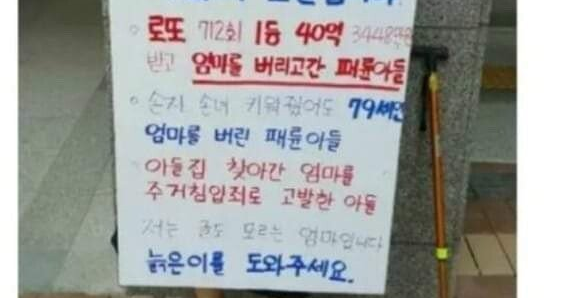 ◦ 로또 712회 1등 40억 3448만원
받고 엄마를 버리고간 패륜아들
◦ 손자 손녀 키워줬어도 79세인
엄마를 버린 패륜아들
아들집 찾아간 엄마를
주거침입죄로 고발한 아들
저는 글도 모르는 엄마입니다
늙은이를 도와주세요.